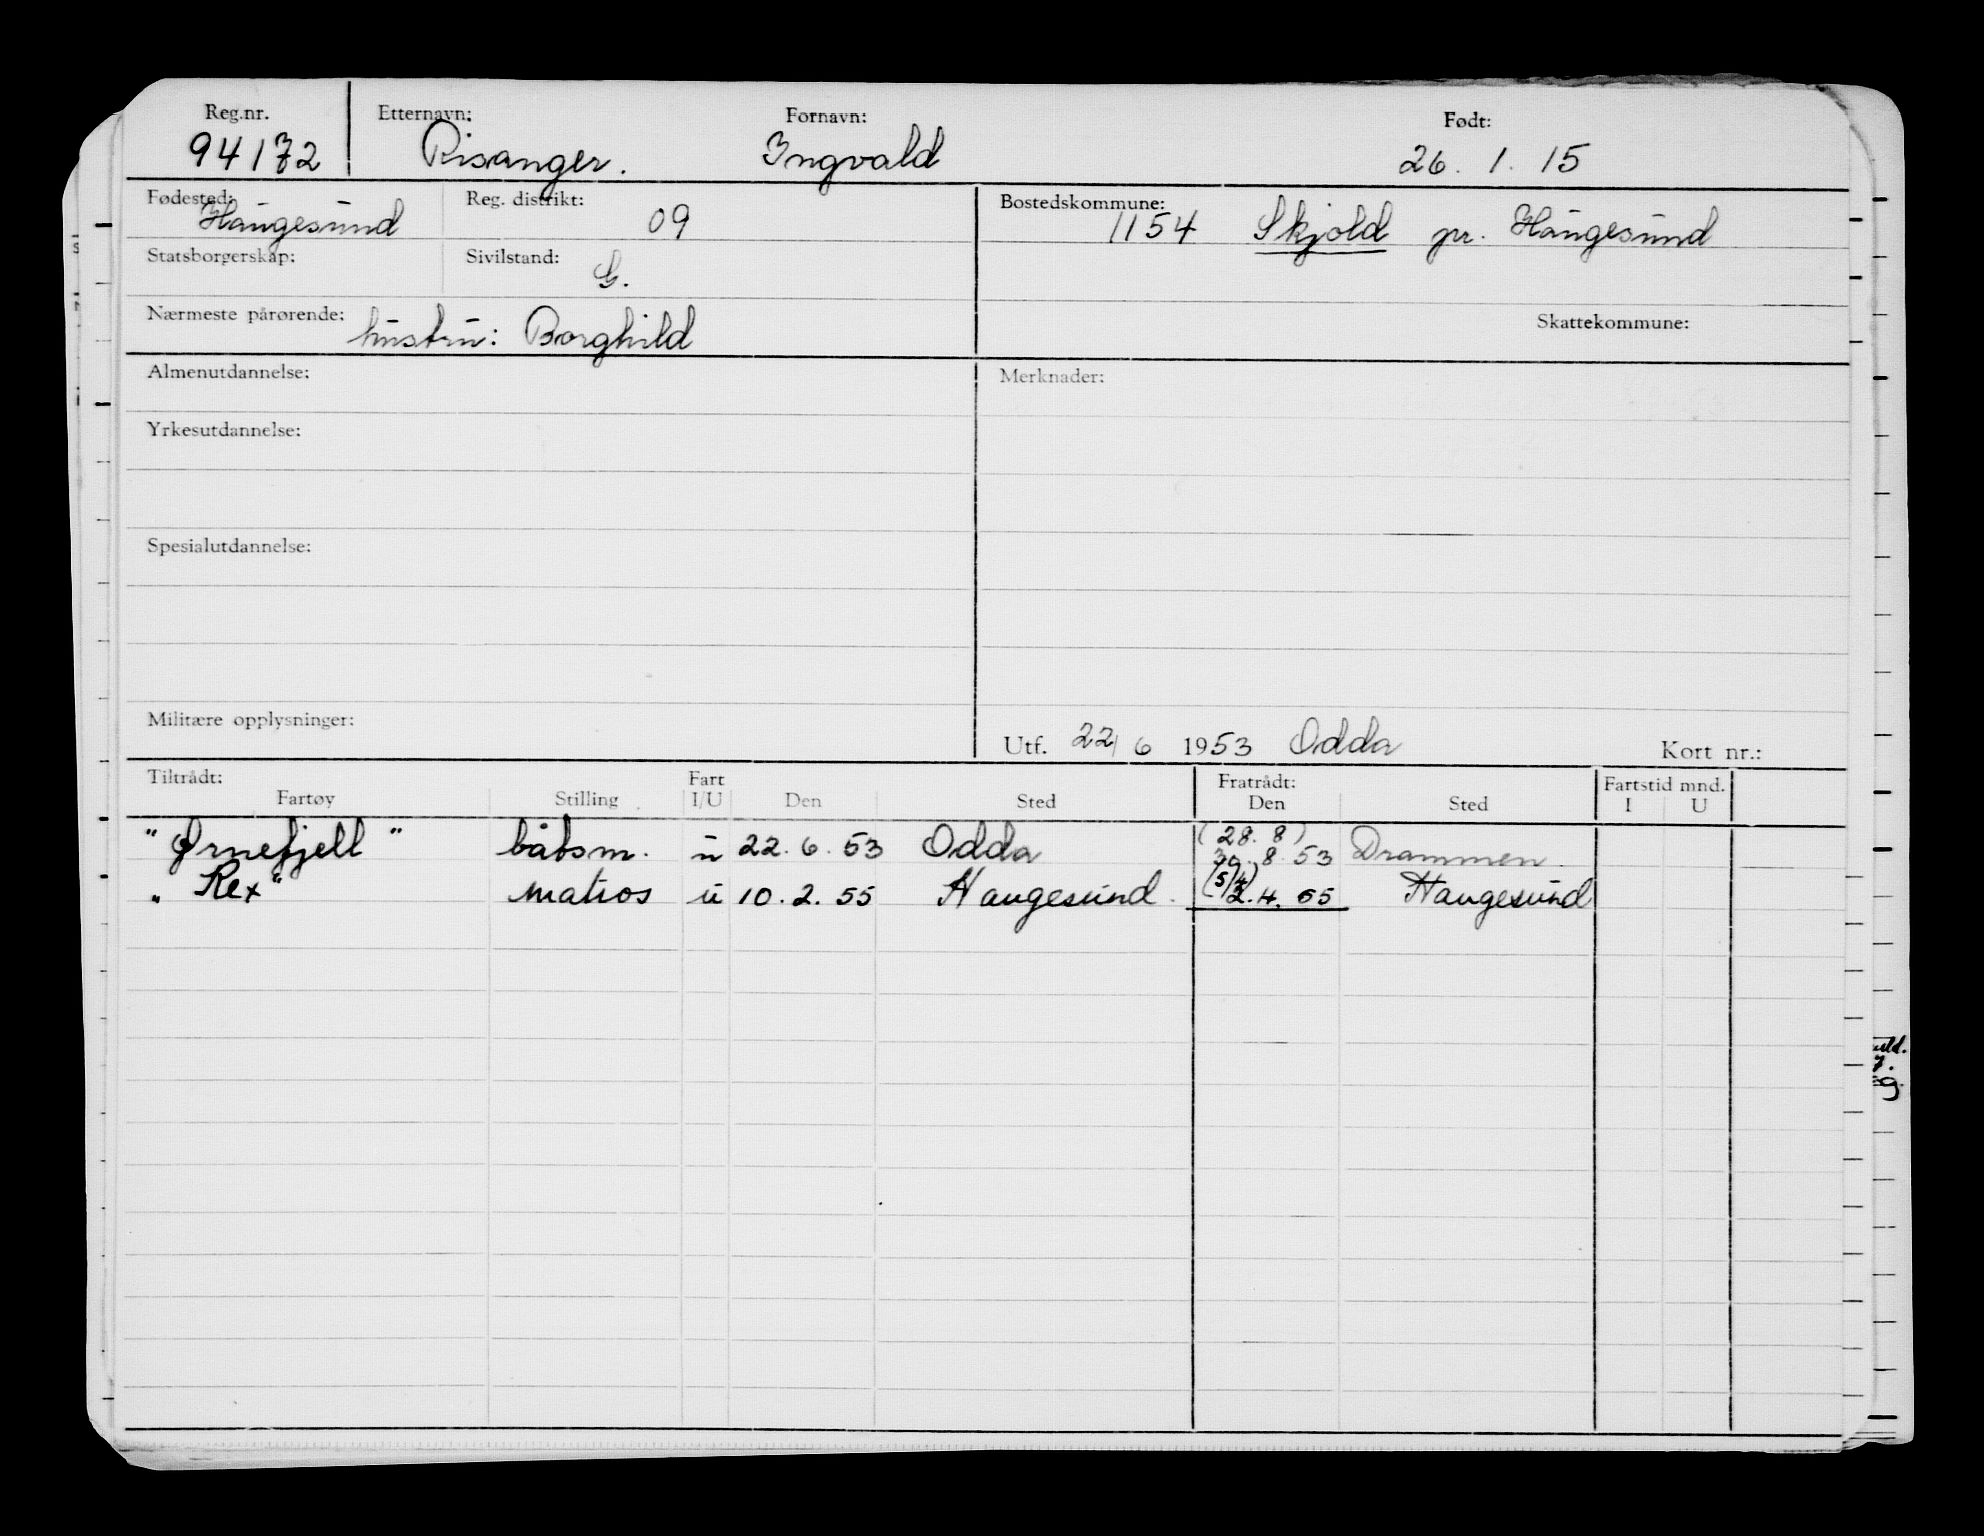 Reg.nr. Etternavn: Fornavn: Født:
94172 Risanger. Ingvald 26. 1. 15
Fødested: Reg. distrikt: Bostedskommune:
Haugesund 09 1154 Skjold pr. Haugesund
Statsborgerskap: Sivilstand: G.
Nærmeste pårørende: hustru: Borghild Skattekommune:
Almenutdannelse: Merknader:
Yrkesutdannelse:
Spesialutdannelse:
Militære opplysninger:
Utf. 22/6 1953 Odda Kort nr.:
Tiltrådt: Fart Fratrådt: Fartstid mnd.
Fartøy Stilling I/U Den Sted Den Sted I U
(28. 8)
"Ørnefjell" båtsm. u 22. 6. 53 Odda 30. 8. 53 Drammen.
(5/4)
"Rex" matros u 10. 2. 55 Haugesund. 2. 4. 55 Haugesund